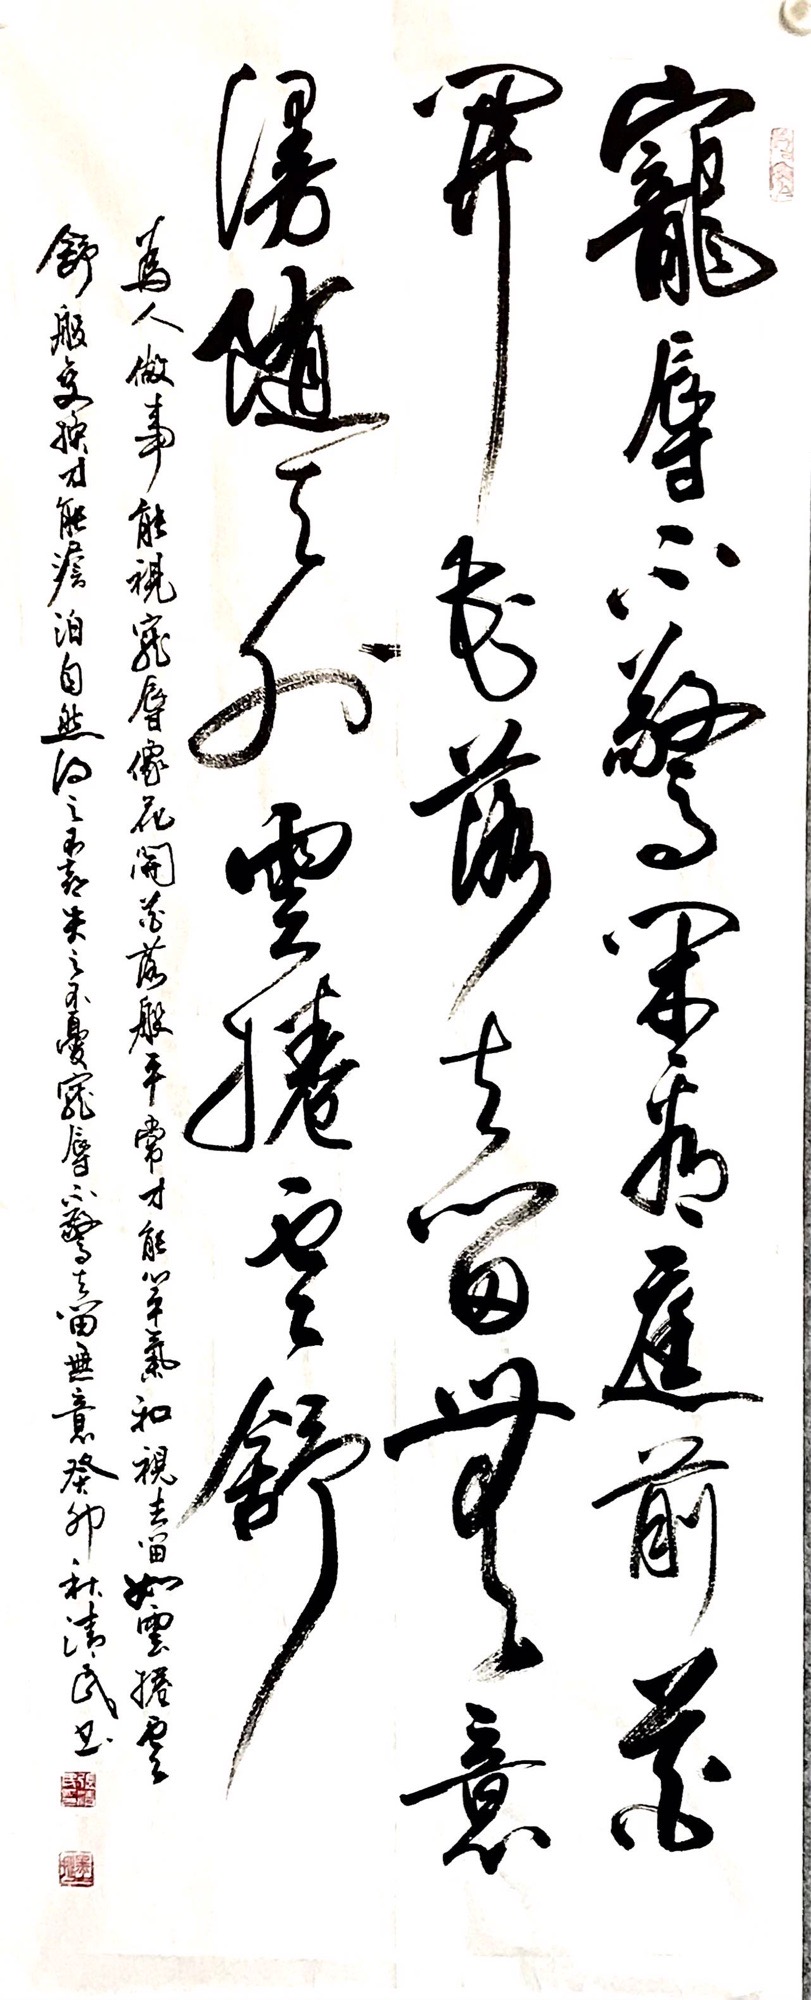 寵辱不驚閑看庭前花
開花落去留無意
漫隨天外雲捲雲舒
為人做事能視寵辱像花開花落般平常才能心平氣和視去留如雲捲雲
舒般變換才能澹泊自然得之不喜失之不憂寵辱不驚去留無意癸卯秋清民書